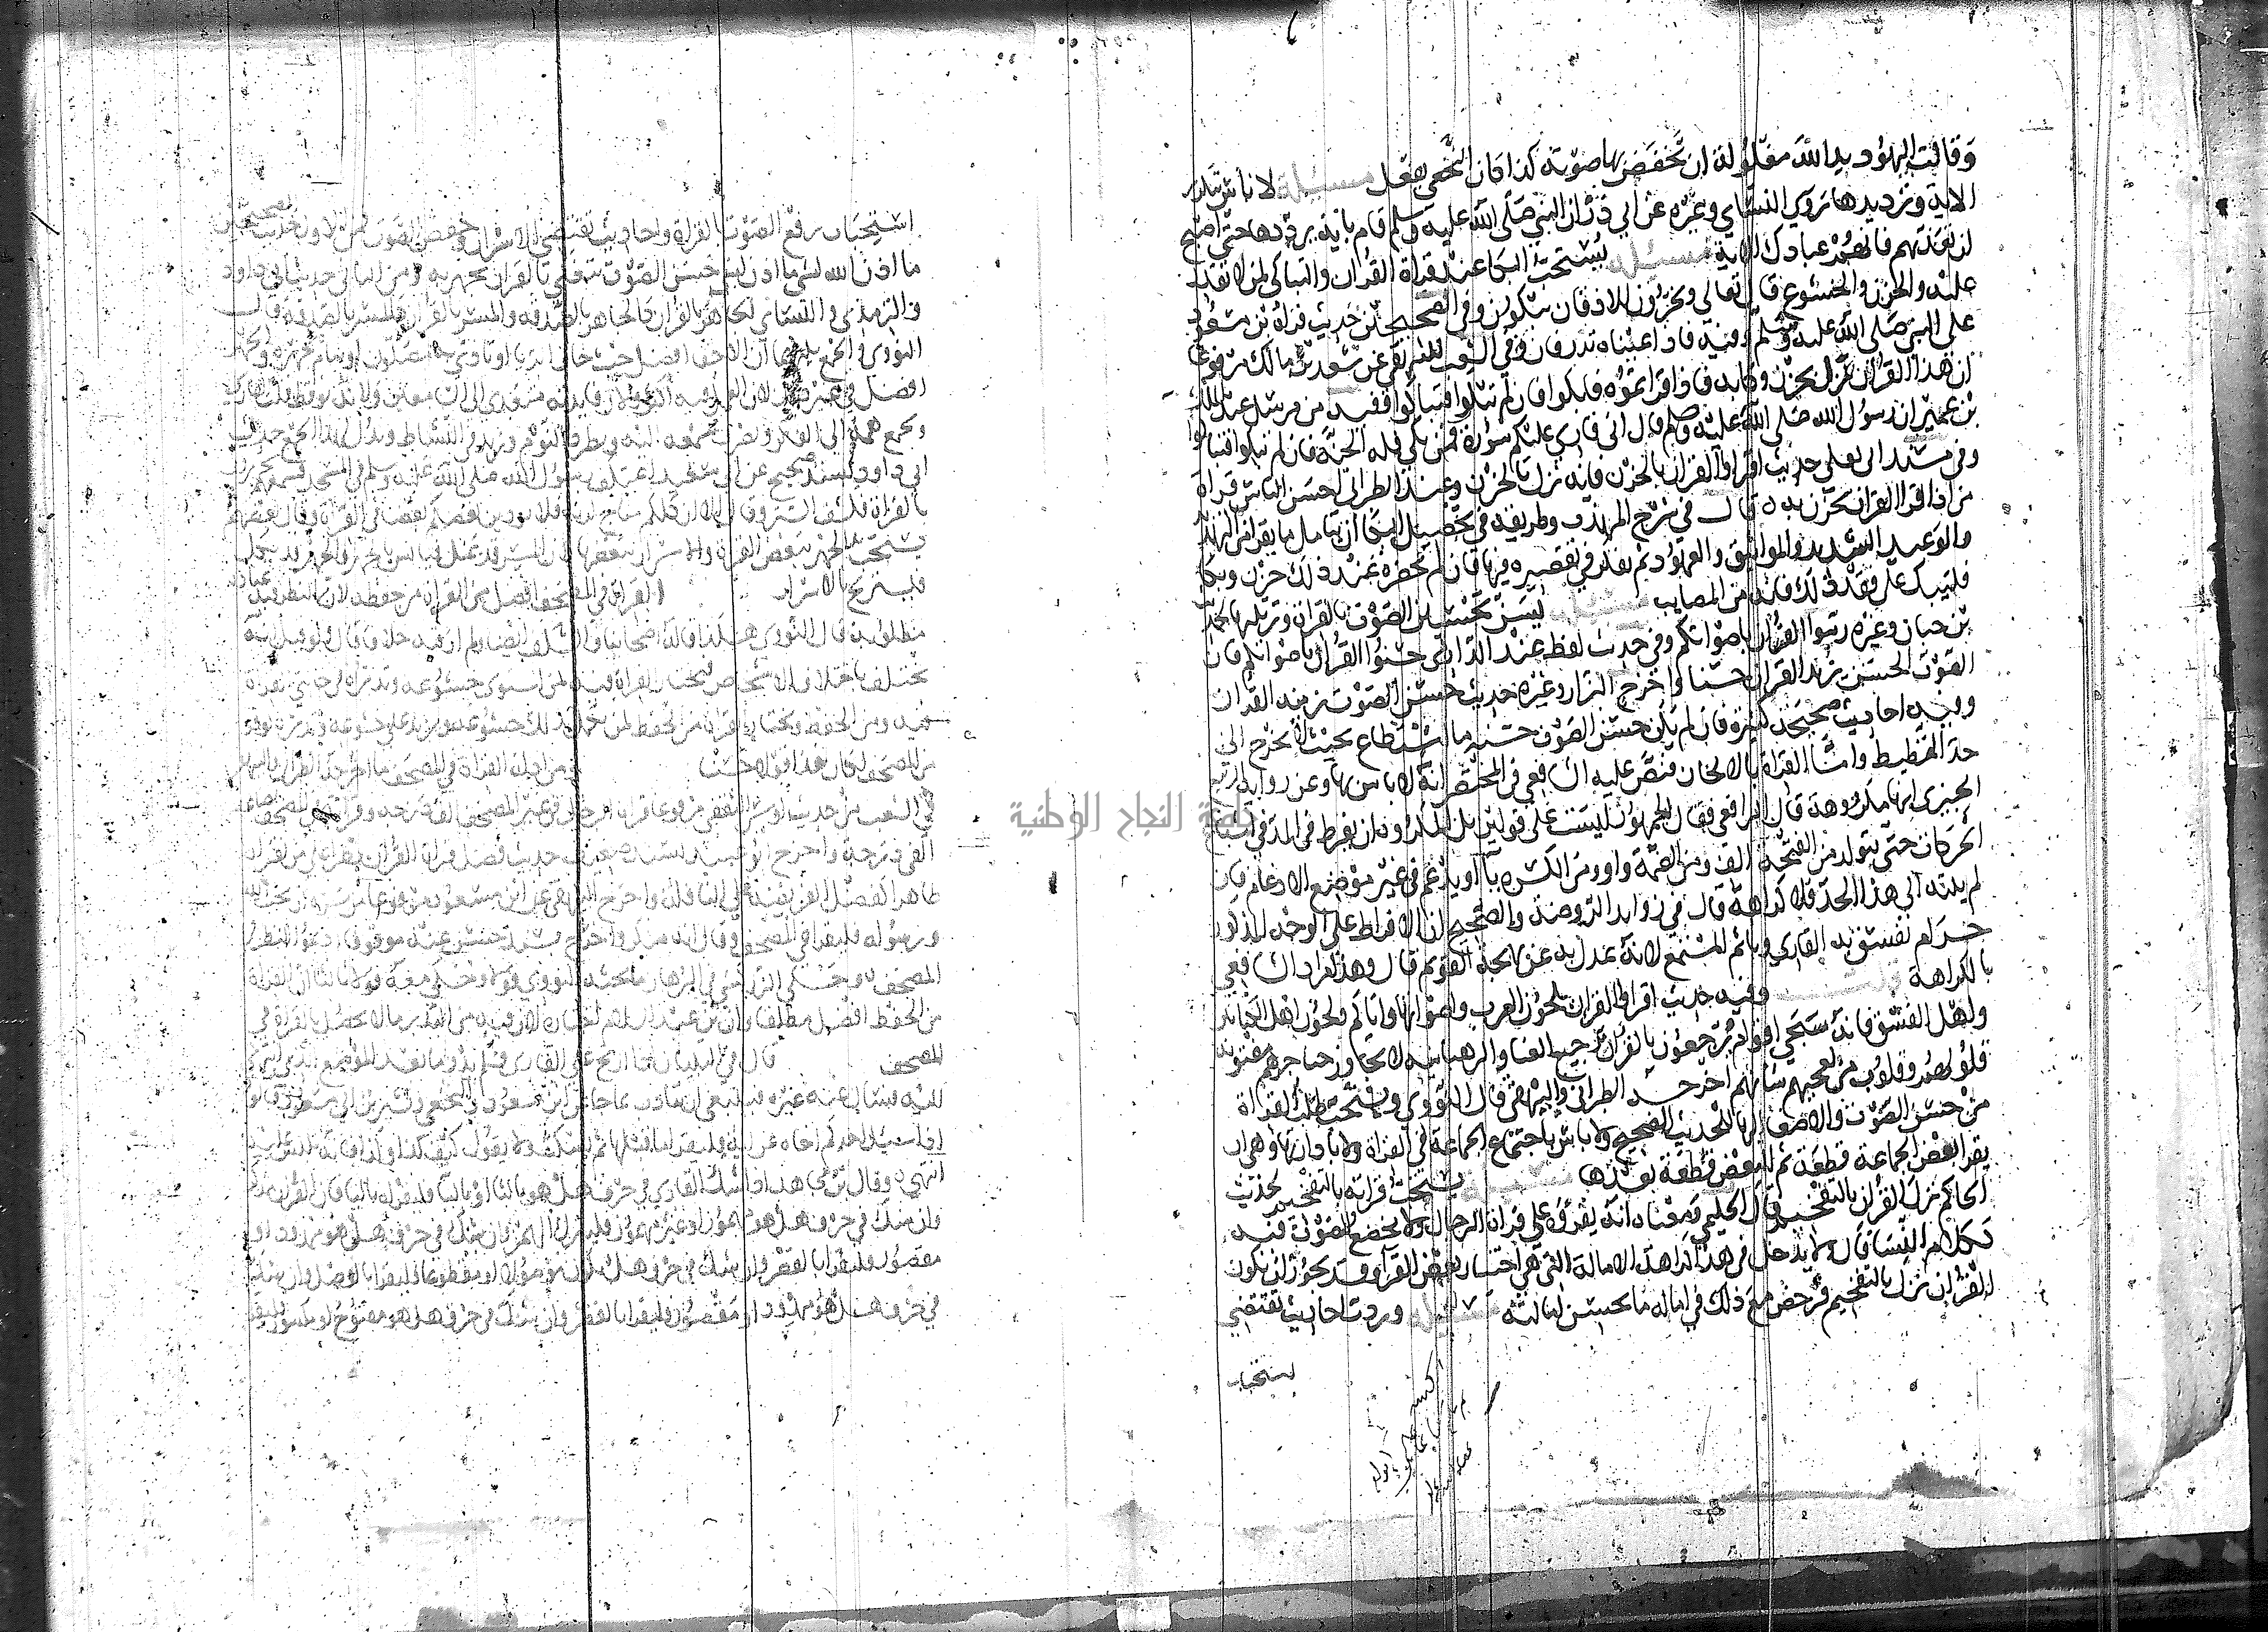 وقالت اليهود يد الله مغلولة ان يخفض بها صوته كذا كان النخعي يفعل مسئلة لا باس بتكرير
الاية وترديدها روي النسائي وغيره عن ابي ذر ان النبي صلى الله عليه وسلم قام باية يرددها حتى اصبح
ان تعذبهم فانهم عبادك الاية مسئلة يستحب البكا عند قراة القران والتباكي لمن لا يقدر
عليه والحزن والخشوع قال تعالى ويخرون للاذقان يبكون وفي الصحيحين حديث قراة بن مسعود
على النبي صلى الله عليه وسلم وفيه فاذا عيناه تذرفان وفي الشعب للبيهقي عن سعد بن مالك مرفوعا
ان هذا القران نزل بحزن وكابة فاذا قراتموه فابكوا فان لم تبكوا فتباكوا وفيه من مرسل عبد الملك
بن عمير ان رسول الله صلى الله عليه وسلم قال اني قاري عليكم سورة فمن بكى فله الجنة فان لم تبكوا فتباكوا
وفي مسند ابي يعلى حديث اقراوا القران بالحزن فانه نزل بالحزن وعند الطبراني احسن الناس قراة
من اذا قرا القران يتحزن به قال في شرح المهذب وطريقه في تحصيل البكا ان يتامل ما يقرا من التهديد
والوعيد الشديد والمواثيق والعهود ثم يفكر في تقصيره فيها فان لم يحضره عند ذلك حزن وبكا
فليبك على فقد ذلك فانه من المصايب مسئلة يسن تحسين الصوت بالقران وتزيينها لحديث
بن حبان وغيره زينوا القران باصواتكم وفي حديث لفظ عند الدارمي حسنوا القران باصواتكم فان
الصوت الحسن يزيد القران حسنا واخرج البزار وغيره حديث حسن الصوت زينة القران
وفيه احاديث صحيحة كثيرة فان لم يكن حسن الصوت حسنه ما استطاع بحيث لا يخرج الى
حد التمطيط واما القراة بالالحان فنص عليه الشافعي في المختصر انه لا باس بها وعن رواية الربيع
الجيزي انها مكروهة قال الرافعي فقال الجمهور ليست على قولين بل المكروه ان يفرط في المد وفي اشباع
الحركات حتى يتولد من الفتحة الف ومن الضمة واو ومن الكسرة يا او يدغم في غير موضع الادغام فان
لم ينته الى هذا الحد فلا كراهة قال في زوايد الروضة والصحيح ان الافراط على الوجه المذكور
حرام يفسق به القاري وياثم المستمع لانه عدل به عن نهجه القويم قال وهذا مراد الشافعي
بالكراهة وفيه حديث اقراوا القران بلحون العرب واصواتها واياكم ولحون اهل الكتابين
واهل الفسق فانه سيجي اقوام يرجعون بالقران ترجيع الغنا والرهبانية لا يجاوز حناجرهم مفتونة
قلوبهم وقلوب من يعجبهم شانهم اخرجه الطبراني والبيهقي قال النووي ويستحب طلب القراة
من حسن الصوت والاصغا اليها للحديث الصحيح ولا باس باجتماع الجماعة في القراة ولا بادارتها وهي ان
يقرا بعض الجماعة قطعة ثم البعض قطعة بعدها مسئلة يستحب قراته بالتفخيم لحديث
الحاكم نزل القران بالتفخيم قال الحليمي ومعناه انه يقرؤه على قراة الرجال ولا يخضع الصوت فيه
ككلام النسا قال ولا يدخل في هذا كراهة الامالة التي هي اختيار بعض القرا وقد يجوز ان يكون
القران نزل بالتفخيم فرخص مع ذلك في امالة ما يحسن امالته مسئلة وردت احاديث تقتضي
استحباب
استحباب رفع الصوت بالقراة واحاديث تقتضي الاسرار وخفض الصوت فمن الاول حديث الصحيحين
ما اذن الله لشي ما اذن لنبي حسن الصوت يتغنى بالقران يجهر به ومن الثاني حديث ابي داود
والترمذي والنسائي الجاهر بالقران كالجاهر بالصدقة والمسر بالقران كالمسر بالصدقة قال
النووي والجمع بينهما ان الاخفا افضل حيث خاف الريا او تاذى مصلون او نيام بجهره والجهر
افضل في غير ذلك لان العمل فيه اكثر ولان فايدته تتعدى الى السامعين ولانه يوقظ قلب القاري
ويجمع همه الى الفكر ويصرف سمعه اليه ويطرد النوم ويزيد في النشاط ويدل لهذا الجمع حديث
ابي داود بسند صحيح عن ابي سعيد اعتكف رسول الله صلى الله عليه وسلم في المسجد فسمعهم يجهرون
بالقراة فكشف الستر وقال الا ان كلكم مناج لربه فلا يوذين بعضكم بعضا في القراة وقال بعضهم
يستحب الجهر ببعض القراة والاسرار ببعضها لان المسر قد يمل فيانس بالجهر والجاهر قد يكل
فيستريح بالاسرار القراة في المصحف افضل من القراة من حفظه لان النظر فيه عبادة
مطلوبة قال النووي هكذا قاله اصحابنا والسلف ايضا ولم ار فيه خلافا قال ولو قيل انه
يختلف باختلاف الاشخاص فيختار القراة فيه لمن استوى خشوعه وتدبره في حالتي القراة
فيه ومن الحفظ ويختار القراة من الحفظ لمن يكمل بذلك خشوعه ويزيد على خشوعه وتدبره لو قرا
من المصحف لكان هذا قولا حسنا ومن ادلة القراة في المصحف ما اخرجه الطبراني والبيهقي
في الشعب من حديث اوس الثقفي مرفوعا قراة الرجل في غير المصحف الف درجة وقراته في المصحف تضاعف
الفي درجة واخرج ابو عبيد بسند ضعيف حديث فضل قراة القران نظرا على من يقراه
ظاهرا كفضل الفريضة على النافلة واخرج البيهقي عن ابن مسعود مرفوعا من سره ان يحب الله
ورسوله فليقرا في المصحف وقال انه منكر واخرج بسند حسن عنه موقوفا اديموا النظر في
المصحف وحكى الزركشي في البرهان ما بحثه النووي قولا وحكى معه قولا ثالثا ان القراة
من الحفظ افضل مطلقا وان بن عبد السلام اختاره لان فيه من التدبر ما لا يحصل بالقراة في
المصحف قال في التبيان اذا ارتج على القاري فلم يدر ما بعد الموضع الذي انتهى
اليه فسال عنه غيره فينبغي ان يتادب بما جا عن ابن مسعود والنخعي وبشير بن ابي مسعود قالوا
اذا سال احدكم اخاه عن اية فليقرا ما قبلها ثم يسكت ولا يقول كيف كذا وكذا فانه يلبس عليه
انتهى وقال بن مجاهد اذا شك القاري في حرف هل هو بالتا او باليا فليقراه باليا فان القران مذكر
وان شك في حرف هل هو مهموز او غير مهموز فليترك الهمز وان شك في حرف هل هو ممدود او
مقصور فليقرا بالقصر وان شك في حرف هل يكون موصولا او مقطوعا فليقرا بالوصل وان شك
في حرف هل هو ممدود او مقصور فليقرا بالقصر وان شك في حرف هل هو مفتوح او مكسور فليقرا
جامعة النجاح الوطنية